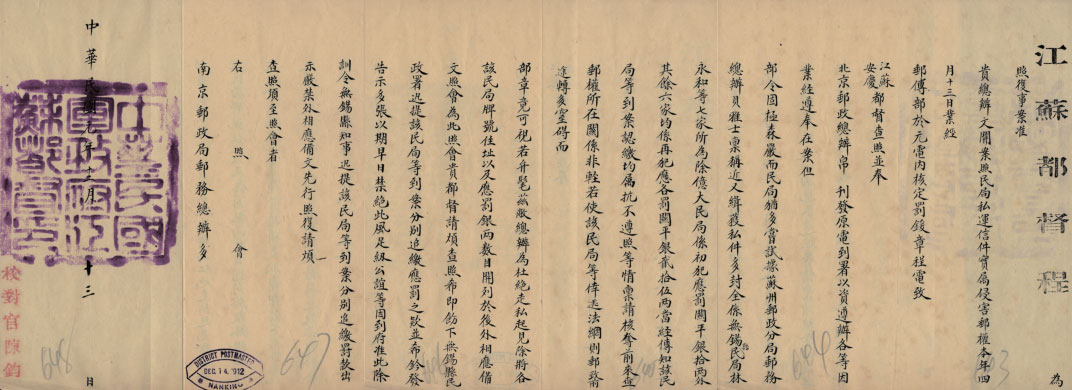 江蘇都督程
為
照復事案准
貴總辦文開案照民局私運信件實屬侵害郵權本年四
月十三日業經
郵傳部於元電內核定罰鍰章程電致
江蘇
安慶
都督查照並奉
北京郵政總辦帛 刊發原電到署以資遵辦各等因
業經遵奉在案但
部令固極森嚴而民局猶多嘗試據蘇州郵政分局郵務
總辦貝雅士稟稱近又緝獲私件多封全係無錫民局林
永和等七家所為除億大民局係初犯應罰關平銀拾兩外
其餘六家均係再犯應各罰關平銀貳拾伍兩當經傳知該民
局等到案認繳均屬抗不遵照等情稟請核奪前來查
郵權所在關係非輕若使該民局等倖逃法網則郵政前
途轉多窒碍而
部章竟可視若弁髦茲敝總辦為杜絕走私起見除將各
該民局牌號住址以及應罰銀兩數目開列於後外相應備
文照會為此照會貴都督請煩查照希即飭下無錫縣民
政署迅提該民局等到案分別追繳應罰之款並希鈐發
告示多張以期早日禁絕此風足紉公誼等因到府准此除
訓令無錫縣知事迅提該民局等到案分別追繳罰款出
示嚴禁外相應備文先行照復請煩
查照須至照會者
右 照 會
南京郵政局郵務總辦多
中華民國元年十二月 十三 日
中華民國軍政府江蘇都督印
校對官陳鈞
DISTRICT POSTMASTER
DEC. 14. 1912
NANKING
647
648